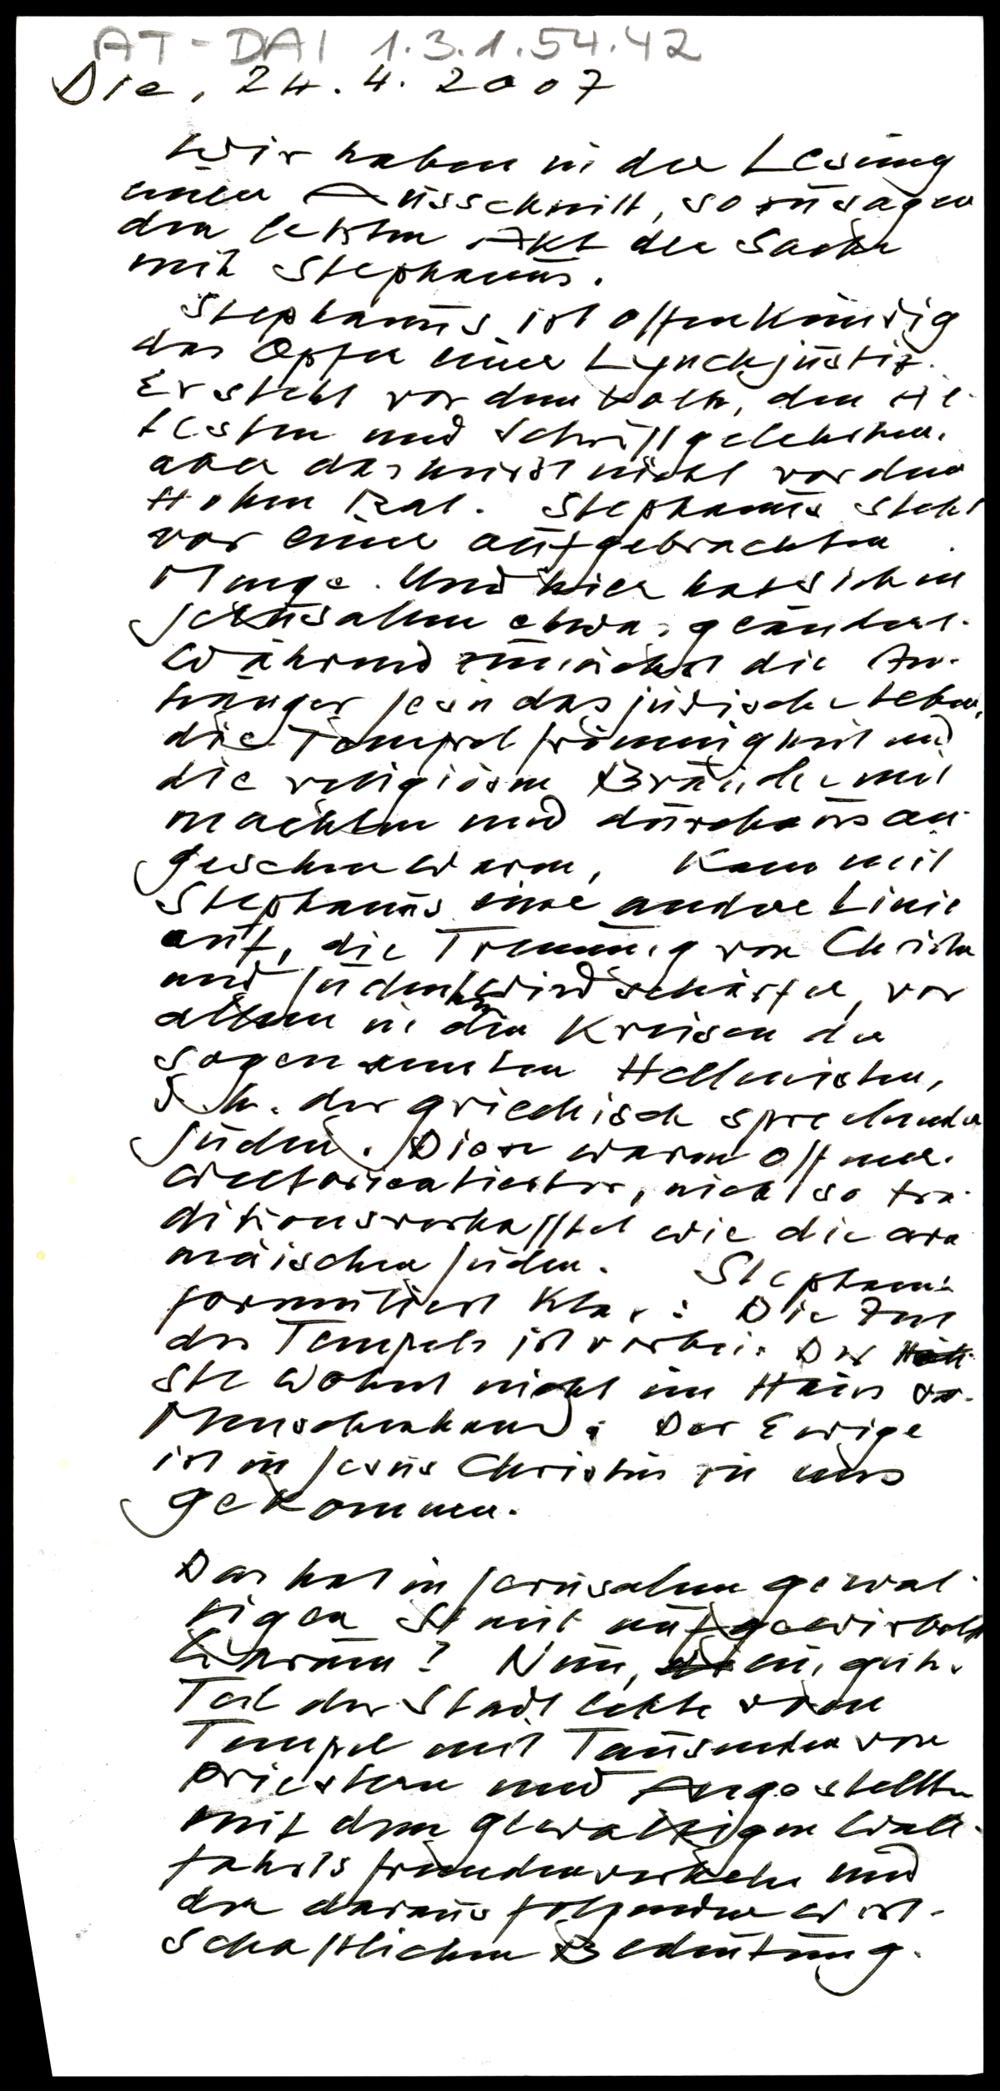 AT-DAI 1.3.1.54.42
Die, 24.4.2007
Wir haben in der Lesung
einen Ausschnitt, sozusagen
den letzten Akt der Sache
mit Stephanus.
Stephanus ist offenkundig
das Opfer einer Lynchjustiz.
Er steht vor dem Volk, den Äl-
testen und Schriftgelehrten,
aber das heißt nicht vor dem
Hohen Rat. Stephanus steht
vor einer aufgebrachten
Menge. Und hier hat sich in
Jerusalem etwas geändert.
Während zunächst die An-
hänger Jesu das jüdische Leben,
die Tempelfrömmigkeit und
die religiösen Bräuche mit
machten und durchaus an-
gesehen waren, kam mit
Stephanus eine andre Linie
auf, die Trennung von Christen
und Juden wird schärfer, vor
allem in den Kreisen der
sogenannten Hellenisten,
d.h. der griechisch sprechenden
Juden. Diese waren offener,
weltorientierter, nicht so tra-
ditionsverhaftet wie die ara
mäischen Juden. Stephanus
formuliert klar: Die Zeit
des Tempels ist vorbei. Der Höch-
ste wohnt nicht im Haus von
Menschenhand: Der Ewige
ist in Jesus Christus zu uns
gekommen.
Das hat in Jerusalem gewal-
tigen Staub aufgewirbelt
Warum? Nun, ein guter
Teil der Stadt lebte vom
Tempel mit Tausenden von
Priestern und Angestellten
mit dem gewaltigen Wall-
fahrtsfremdenverkehr und
der daraus folgenden wirt-
schaftlichen Bedeutung.